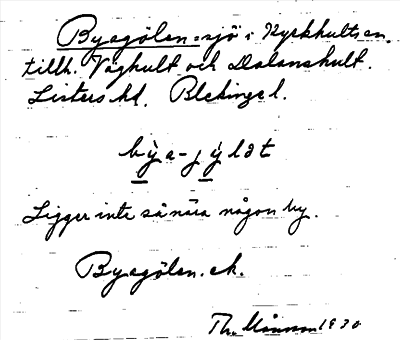 Byagölen = sjö i Kyrkhults sn.
tillh. Våghult och Dalanshult.
Listers hd. Blekinge l.
bỳa-jỳlət
Ligger inte så nära någon by.
Byagölen. ek.
Th. Månsson 1930